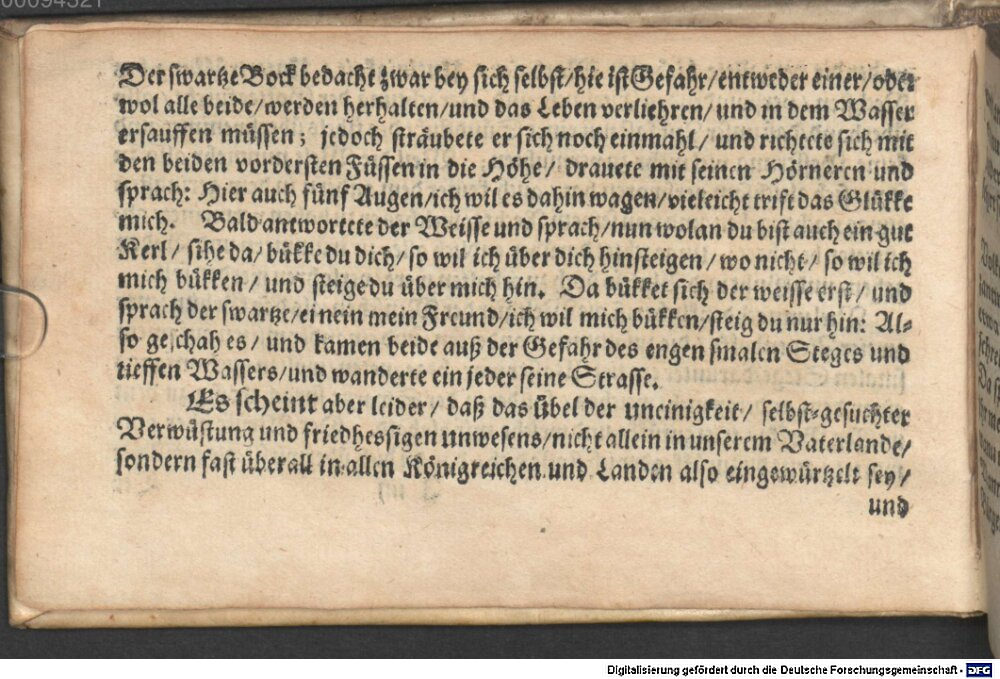 00094521
Der swartze Bock bedacht zwar bey sich selbst/hie ist Gefahr/entweder einer/oder
wol alle beide/werden herhalten/und das Leben verliehren/und in dem Wasser
ersauffen müssen; jedoch sträubete er sich noch einmahl/ und richtete sich mit
den beiden vordersten Füssen in die Höhe/ drauete mit seinen Hörneren und
sprach: Hier auch fünf Augen/ich wil es dahin wagen/vieleicht trift das Glükke
mich. Bald antwortete der Weisse und sprach/nun wolan du bist auch ein gut
Kerl/ sihe da/ bükke du dich/ so wil ich über dich hinsteigen/ wo nicht/ so wil ich
mich bükken/ und steige du über mich hin. Da bükket sich der weisse erst/ und
sprach der swartze/ei nein mein Freund/ich wil mich bükken/steig du nur hin: Al-
so geschah es/ und kamen beide auß der Gefahr des engen smalen Steges und
tieffen Wassers/und wanderte ein jeder seine Strasse.
Es scheint aber leider/ daß das übel der uneinigkeit/ selbst-gesuchter
Verwüstung und friedhessigen unwesens/nicht allein in unserem Vaterlande/
sondern fast überall in allen Königreichen und Landen also eingewürtzelt sey/
und
Digitalisierung gefördert durch die Deutsche Forschungsgemeinschaft - DFG